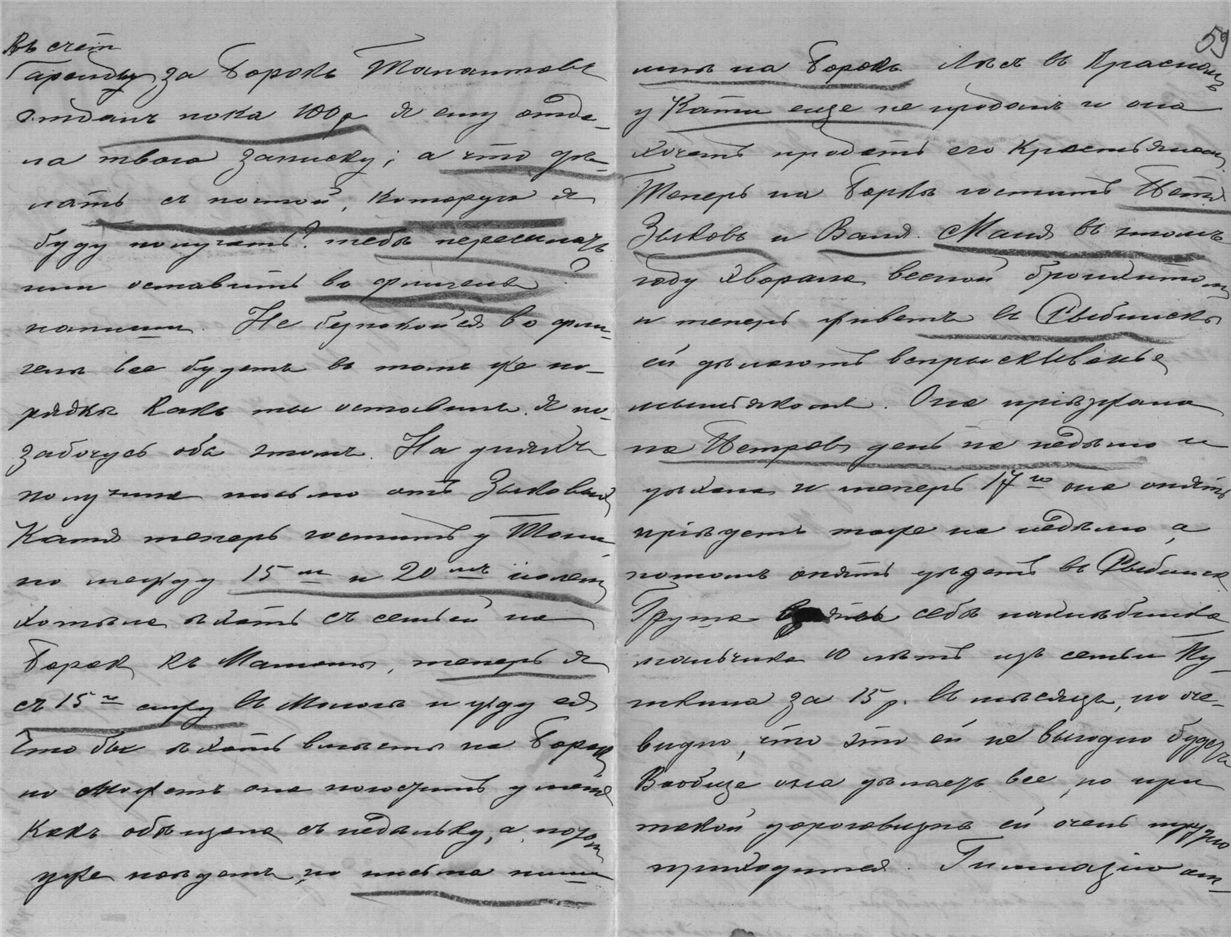 Въ счетъ
Аренды за Борокъ Талантовъ
отдалъ пока 100 р я ему отда-
ла твою записку; а что дѣ-
лать съ почтой, которую я
буду получать? тебѣ пересылать
или оставить во флигелѣ?
напиши. Не безпокойся во фли-
гелѣ все будетъ въ томъ же по-
рядкѣ какъ ты оставилъ. я по-
забочусь объ этомъ. На дняхъ
получила письмо отъ Зыковыхъ
Катя теперь гоститъ у Тони
но между 15 и 20 іюлемъ
хотѣла ѣхать съ семьей на
Борок къ Мамаши, теперь я
съ 15 сижу въ Мологѣ и жду ея
что бы ѣхать вмѣстѣ на Борокъ
но можетъ она погоститъ у меня
какъ обѣщала съ недѣльку, а потомъ
уже поѣдетъ, но письма пиши
мнѣ на Борокъ. Лѣсъ въ Красномъ
у Кати еще не проданъ и она
хочетъ продать его крестьянамъ.
Теперь на Боркѣ гоститъ Петя
Зыковъ и Ваня. Маня въ этомъ
году хворала весной бронхитомъ
и теперь живетъ въ Рыбинскѣ
ей дѣлаютъ вспрыскиванье
мышьякомъ. Она пріѣзжала
на Петровъ день на недѣлю и
уѣхала и теперь 17го она опять
пріѣдетъ тоже на недѣлю а
потомъ опять уѣдетъ въ Рыбинск.
Груша взяла себѣ нахлѣбника
мальчика 10 лѣтъ изъ семьи
за 15 р. въ мѣсяцъ, но оче-
видно, что это ей не выгодно будетъ
Вообще она дѣлаетъ все, но при
такой дороговизнѣ ей очень трудно
приходится. Гимназію